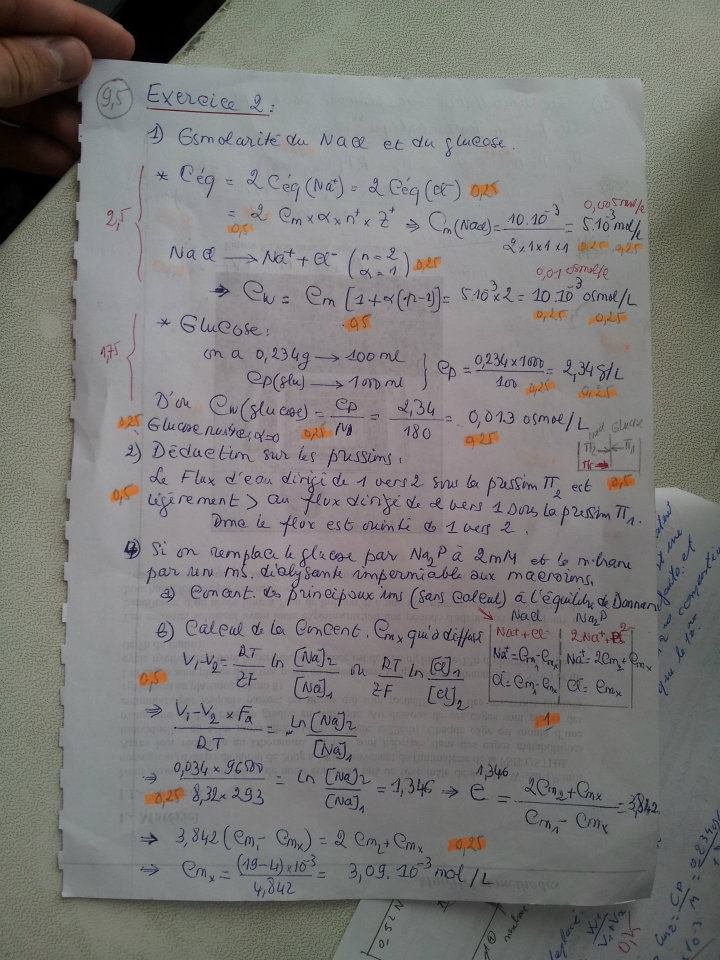 9,5
Exercice 2:
1) Osmolarité du NaCl et du glucose.
2,5
* Céq = 2 Céq(Na⁺) = 2 Céq(Cl⁻) 0,25
= 2 Cm × α × n⁺ × Z⁺ ⇒ Cm(NaCl) = 10.10⁻³ / 2×1×1×1 = 5.10⁻³ mol/L
0,5
0,25 0,25
NaCl → Na⁺ + Cl⁻ (n=2 α=1) 0,25
0,01 osmol/L
⇒ Cw = Cm [1+α(n-1)] = 5.10⁻³ × 2 = 10.10⁻³ osmol/L
0,5 0,25 0,25
1,75
* Glucose:
on a 0,234g → 100 ml
Cp(glu) → 1000 ml } Cp = 0,234×1000 / 100 = 2,34 g/L
0,25 0,25
D'où Cw(glucose) = Cp / M = 2,34 / 180 = 0,013 osmol/L
0,25 Glucose α=0 0,25 0,25
NaCl Glucose
π2 π1
2) Déduction sur les pressions:
Le Flux d'eau dirigé de 1 vers 2 sous la pression π₂ est 0,5
0,5 légèrement > au flux dirigé de 2 vers 1 sous la pression π₁.
Donc le flux est orienté de 1 vers 2.
4) Si on remplace le glucose par Na₂P à 2mM et la mbrane
par une dialysante imperméable aux macroions,
a) Concent. des principaux ions (sans calcul) à l'équilibre de Donnan
NaCl Na₂P
b) Calcul de la Concent. Cmx qui a diffusé
Na⁺ + Cl⁻ 2Na⁺ +
Na⁺ = Cm₁ - Cmx Na⁺ = 2Cm₂ + Cmx
Cl⁻ = Cm₁ - Cmx Cl⁻ = Cmx
1
0,5 V₁-V₂ = RT / ZF ln [Na]₂ / [Na]₁ ou RT / ZF ln [Cl]₁ / [Cl]₂
⇒ V₁-V₂ × Fa / RT = Ln [Na]₂ / [Na]₁
⇒ 0,034 × 96500 / 8,32 × 293 = ln [Na]₂ / [Na]₁ = 1,346 ⇒ e^1,346 = 2Cm₂ + Cmx / Cm₁ - Cmx = 3,842
0,25
⇒ 3,842 (Cm₁ - Cmx) = 2 Cm₂ + Cmx 0,25
⇒ Cmx = (19-4)×10⁻³ / 4,842 = 3,09.10⁻³ mol/L